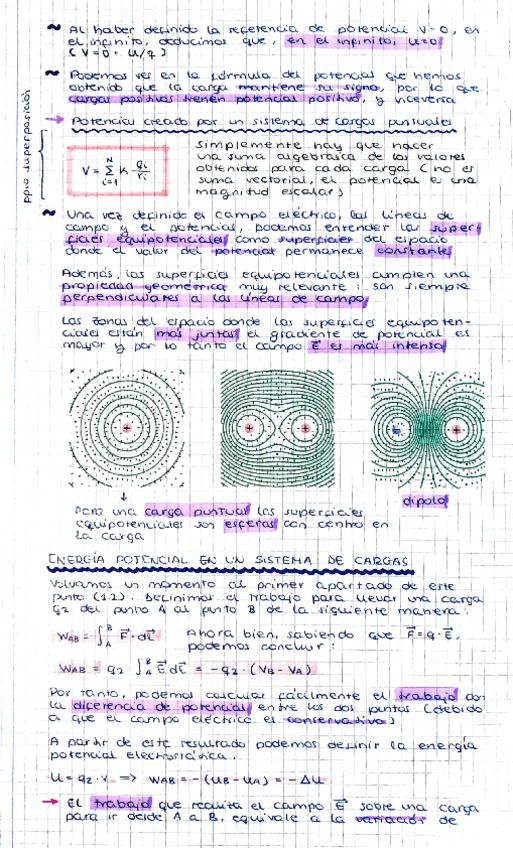 ~ Al haber definido la referencia de potencial V=0, en
el infinito, deducimos que, en el infinito, U=0
(V=0= U/q)
~ Podemos ver en la fórmula del potencial que hemos
obtenido que la carga mantiene su signo, por lo que
cargas positivas tienen potencial positivo, y viceversa
→ Potencial creado por un sistema de cargas puntuales
ppio superposición
V = Σ K qi/ri
i=1
N
Simplemente hay que hacer
una suma algebraica de los valores
obtenidos para cada carga (no es
suma vectorial, el potencial es una
magnitud escalar)
~ Una vez definido el campo eléctrico, las líneas de
campo y el potencial, podemos entender las super-
ficies equipotenciales como superficies del espacio
donde el valor del potencial permanece constante
Además, las superficies equipotenciales cumplen una
propiedad geométrica muy relevante: son siempre
perpendiculares a las líneas de campo
Las zonas del espacio donde las superficies equipoten-
ciales están más juntas el gradiente de potencial es
mayor y por lo tanto el campo E⃗ es más intenso
+ + + - +
dipolo
↓
Para una carga puntual las superficies
equipotenciales son esferas con centro en
la carga
ENERGÍA POTENCIAL EN UN SISTEMA DE CARGAS
Volvamos un momento al primer apartado de este
punto (1.2). Definimos el trabajo para llevar una carga
q2 del punto A al punto B de la siguiente manera:
WAB = ∫AB F⃗·dl⃗ Ahora bien, sabiendo que F⃗=q·E⃗,
podemos concluir:
WAB = q2 ∫AB E⃗ dl⃗ = -q2·(VB-VA)
Por tanto, podemos calcular fácilmente el trabajo con
la diferencia de potencial entre los dos puntos (debido
a que el campo eléctrico es conservativo)
A partir de este resultado podemos definir la energía
potencial electrostática.
U=q2·V => WAB = -(UB-UA) = -ΔU
→ El trabajo que realiza el campo E⃗ sobre una carga
para ir desde A a B, equivale a la variación de